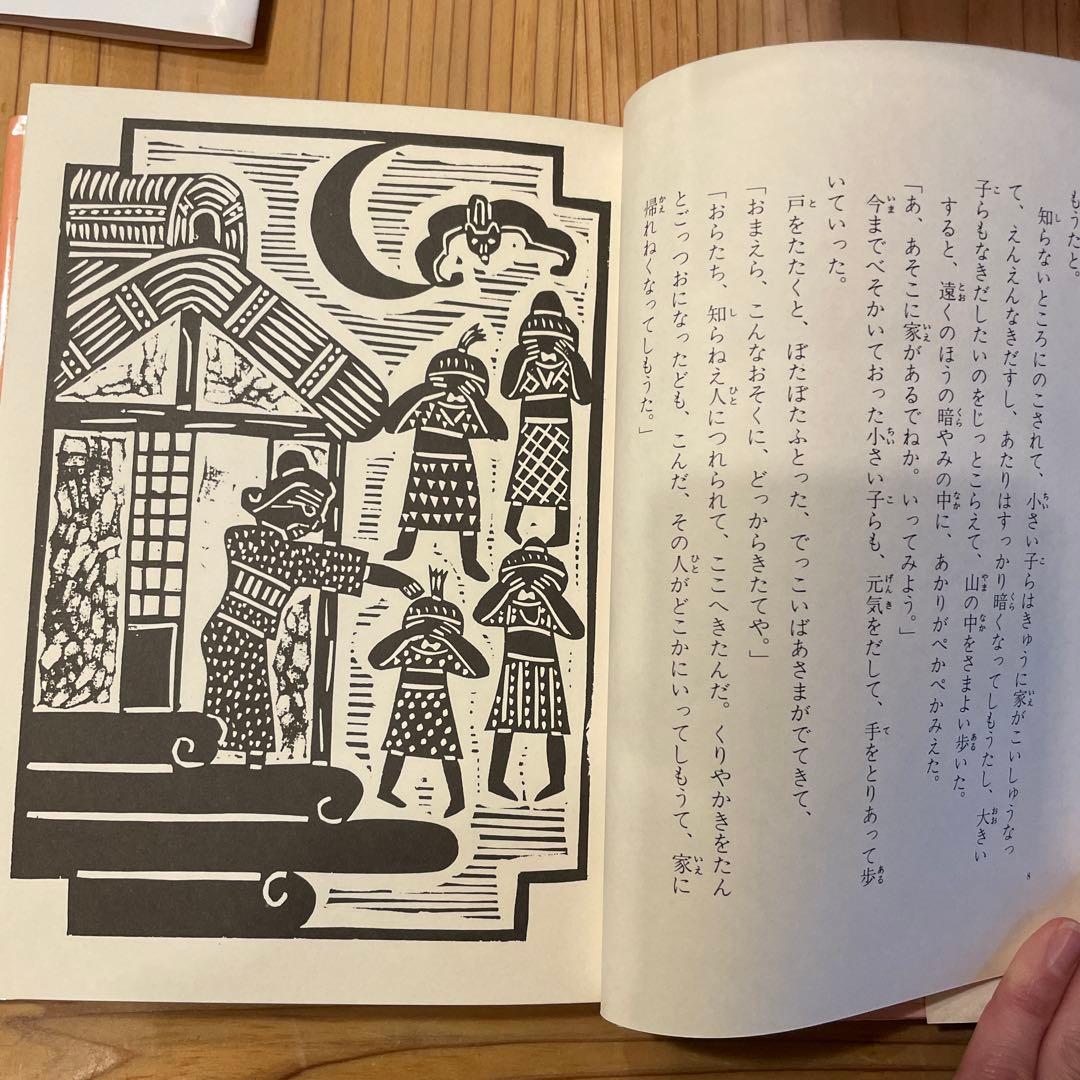 もうたと。
知らないところにのこされて、小さい子らはきゅうに家がこいしゅうなっ
て、えんえんなきだすし、あたりはすっかり暗くなってしもうたし、大きい
子らもなきだしたいのをじっとこらえて、山の中をさまよい歩いた。
すると、遠くのほうの暗やみの中に、あかりがぺかぺかみえた。
「あ、あそこに家があるでねか。いってみよう。」
今までべそかいておった小さい子らも、元気をだして、手をとりあって歩
いていった。
戸をたたくと、ぼたぼたふとった、でっこいばあさまがでてきて、
「おまえら、こんなおそくに、どっからきたてや。」
「おらたち、知らねえ人につれられて、ここへきたんだ。くりやかきをたん
とごっつおになったども、こんだ、その人がどこかにいってしもうて、家に
帰れねくなってしもうた。」
8